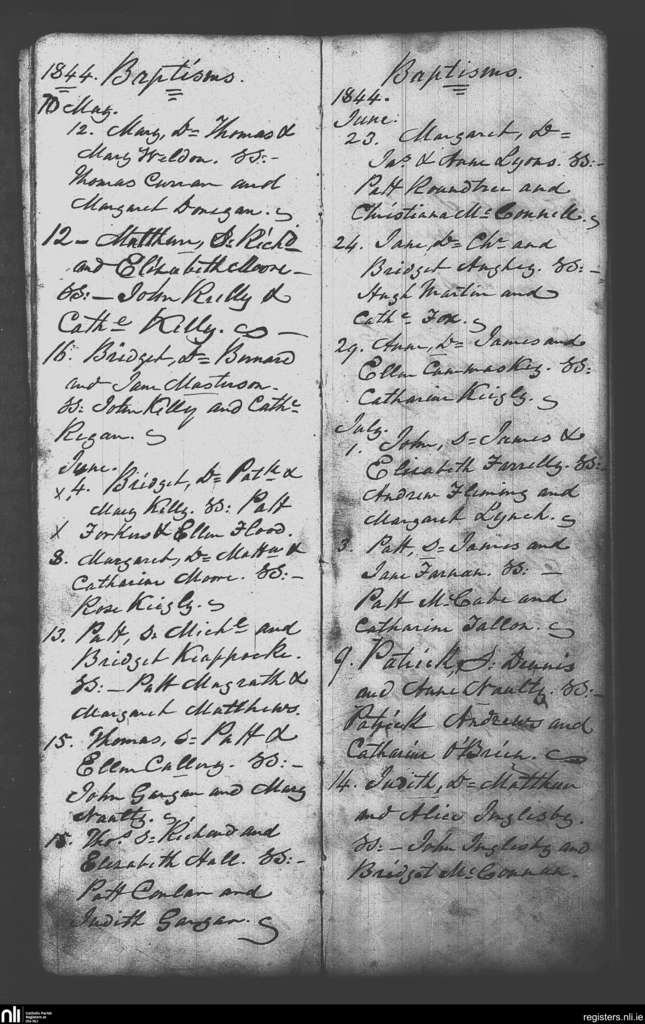 1844. Baptisms.
May.
12. Mary, Dr= Thomas &
Mary Weldon. SS:-
Thomas Curran and
Margaret Donegan.
12 – Matthew, S: Richd
and Elizabeth Moore –
SS: – John Reilly &
Cathe Kelly. –
16. Bridget, Dr= Bernard
and Jane Masterson.
SS: John Kelly and Cathe
Regan.
June.
x 4. Bridget, Dr= Patk &
Mary Kelly. SS: Patt
X & Ellen Flood.
8. Margaret, Dr= Mattw &
Catharine Moore. SS:-
Rose Keigly.
13. Patt, S= Michl and
Bridget
SS: – Patt Magrath &
Margaret Matthews.
15. Thomas, S= Patt &
Ellen Callery. SS:-
John Gargan and Mary
Naulty.
15. Thos S= Richard and
Elizabeth Hall. SS:-
Patt Conlan and
Judith Gargan.
Baptisms.
1844.
June:
23. Margaret, Dr=
Jas & Anne Lyons. SS:-
Patt Roundtree and
Christiana McConnell.
24. Jane, Dr= Chr and
Bridget Hughey. SS:-
Hugh Martin and
Cathe Fox.
29. Anne, Dr= James and
Ellen SS:
Catharine Keigly.
July.
1. John, S= James &
Elizabeth Farrelly. SS:
Andrew Fleming and
Margaret Lynch.
3. Patt, S= James and
Jane Farnan. SS: –
Patt McCabe and
Catharine Fallon.
9. Patrick, S: Dennis
and Anne Naulty. SS:-
Patrick Andrews and
Catharine O'Brien.
14. Judith, Dr= Matthew
and Alice Inglesby.
SS: – John Inglesby and
Bridget
nli Catholic Parish
Registers at
the NLI
registers.nli.ie